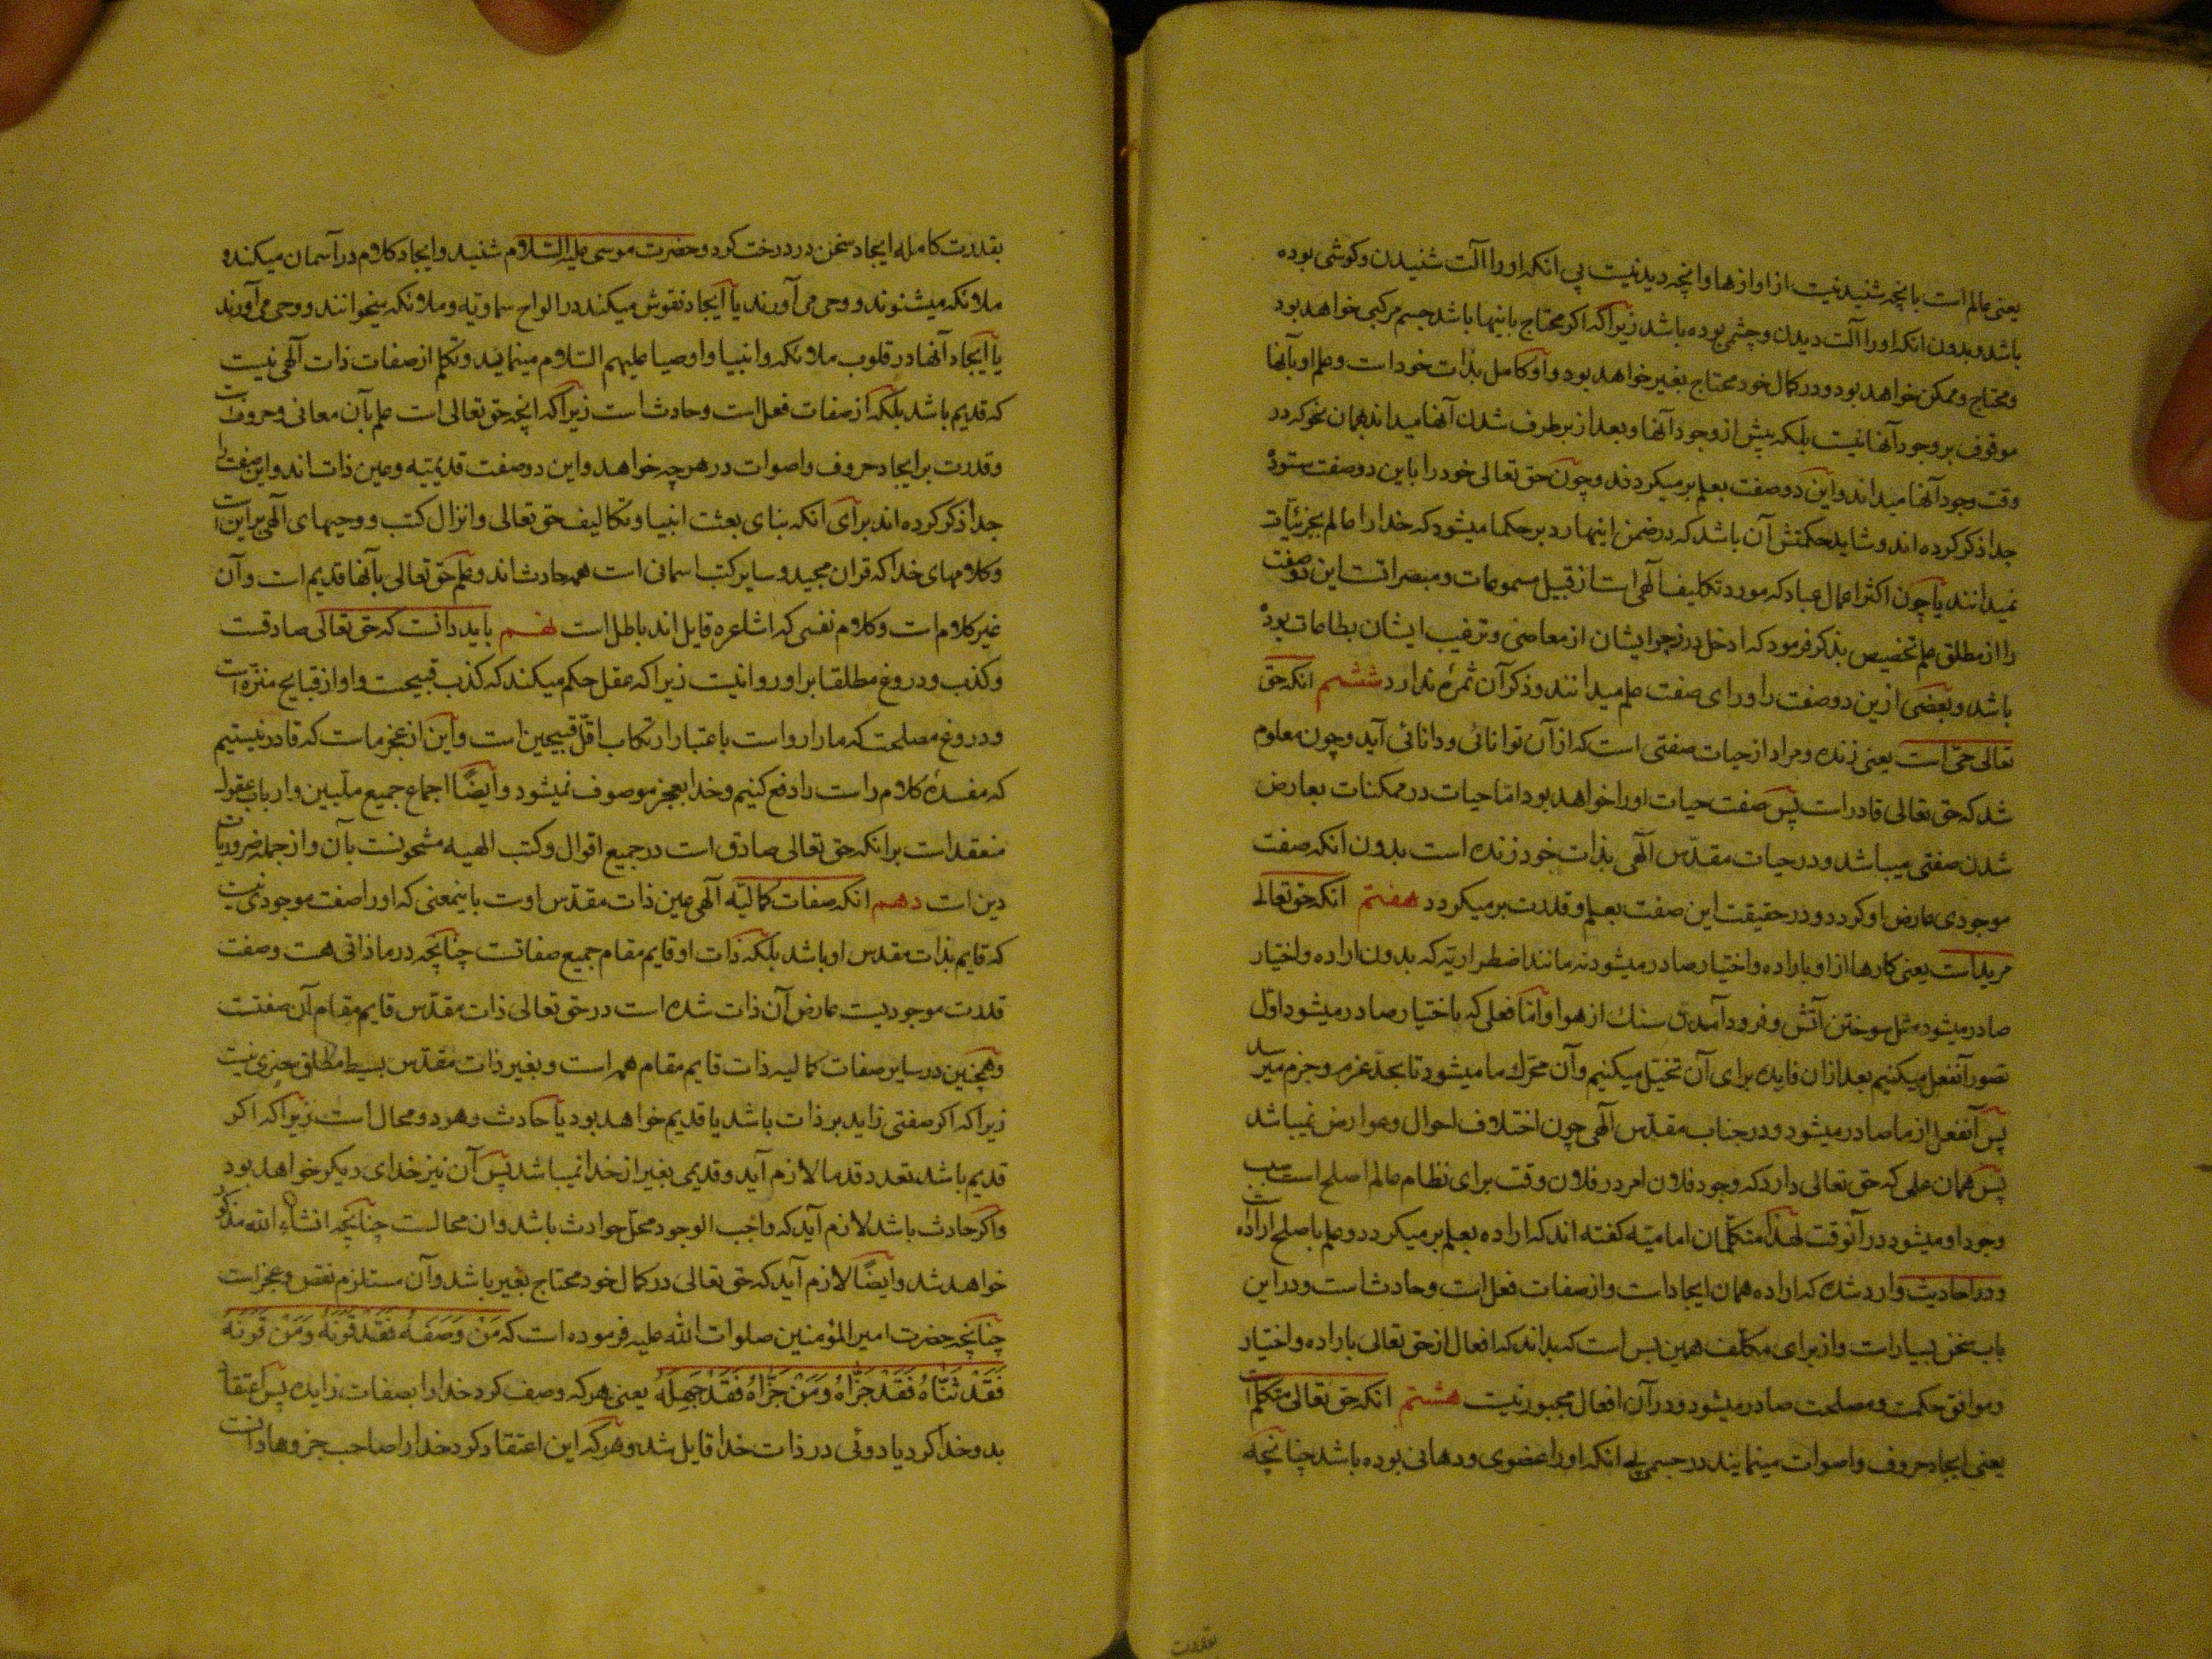 یعنی عالم است بانچه شنیدنیست از اوازها وانچه دیدنیست بی انکه او را آلت شنیدن و کوشی بوده
باشد و بدون انکه او را آلت دیدن و چشمی بوده باشد زیرا که اکر محتاج باینها باشد جسم مرکبی خواهد بود
و محتاج و ممکن خواهد بود و در کمال خود محتاج بغیر خواهد بود و او کامل بذات خود است و علم او بآنها
موقوف بر وجود آنها نیست بلکه پیش از وجود آنها و بعد از برطرف شدن آنها میداند بهمان نحو که در
وقت وجود آنها میداند و این دو صفت بعلم بر میکردند و چون حق تعالی خود را باین دو صفت ستوده
جدا ذکر کرده اند و شاید حکمتش آن باشد که در ضمن اینها رد بر حکما میشود که خدا را عالم بجزئیات
نمیدانند یا چون اکثر اعمال عباد که مورد تکالیف الهی است از قبیل مسموعات و مبصراتست این دو صفت
را از مطلق علم تخصیص بذکر فرمود که ادخل در زجر ایشان از معاصی و ترغیب ایشان بطاعات بوده
باشد و بعضی ازین دو صفت را ورای صفت علم میدانند و ذکر آن ثمره ندارد ششم انکه حق
تعالی حی است یعنی زنده و مراد از حیات صفتی است که از آن توانائی و دانائی آید و چون معلوم
شد که حق تعالی قادر است پس صفت حیات او را خواهد بود اما حیات در ممکنات بعارض
شدن صفتی میباشد و در حیات مقدس الهی بذات خود زنده است بدون انکه صفت
موجودی عارض او کردد و در حقیقت این صفت بعلم و قدرت بر میکردد هفتم انکه حق تعالی
مرید است یعنی کارها از او باراده و اختیار صادر میشود نه مانند اضطراریه که بدون اراده و اختیار
صادر میشود مثل سوختن آتش و فرود آمدن سنك از هوا و اما فعلی که باختیار صادر میشود اول
تصور آنفعل میکنیم بعد ازان فایده برای آن تخیل میکنیم و آن محرك ما میشود تا بحد عزم و جزم میرسد
پس آنفعل از ما صادر میشود و در جناب مقدس الهی چون اختلاف احوال و عوارض نمیباشد
پس همان علمی که حق تعالی دارد که وجود فلان امر در فلان وقت برای نظام عالم اصلح است سبب
وجود او میشود در آنوقت لهذا متکلمان امامیه کفته اند که اراده بعلم بر میکردد و علم باصلح اراده است
و در احادیث وارد شده که اراده همان ایجاد است و از صفات فعل است و حادث است و در این
باب سخن بسیار است و از برای مکلف همین بس است که بداند که افعال از حق تعالی باراده و اختیار
و موافق حکمت و مصلحت صادر میشود و در آن افعال مجبور نیست هشتم انکه حق تعالی متکلم است
یعنی ایجاد حروف و اصوات مینمایند در جسمی بی انکه او را عضوی و دهانی بوده باشد چنانچه
بقدرت
بقدرت کامله ایجاد سخن در درخت کرد و حضرت موسی علیه السلام شنید و ایجاد کلام در آسمان میکند و
ملائکه میشنوند و وحی می آورند یا ایجاد نقوش میکند در الواح سماویه و ملائکه میخوانند و وحی می آورند
یا ایجاد آنها در قلوب ملائکه و انبیا و اوصیا علیهم السلام مینماید و تکلم از صفات ذات الهی نیست
که قدیم باشد بلکه از صفات فعل است و حادث است زیرا که انچه حق تعالی است علم بآن معانی و حروف است
و قدرت بر ایجاد حروف و اصوات در هرچه خواهد و این دو صفت قدیمیه و عین ذات اند و این صفت را
جدا ذکر کرده اند برای انکه بنای بعثت انبیا و تکالیف حق تعالی و انزال کتب و وحیهای الهی بر این است
و کلامهای خدا که قران مجید و سایر کتب اسمانی است همه حادث اند و علم حق تعالی بآنها قدیم است و آن
غیر کلام است و کلام نفسی که اشاعره قایل اند باطل است نهم باید دانست که حق تعالی صادقست
و کذب و دروغ مطلقا بر او روا نیست زیرا که عقل حکم میکند که کذب قبیحست و او از قبایح منزه است
و دروغ مصلحت که ما را رواست باعتبار ارتکاب اقل قبیحین است و این از عجز ماست که قادر نیستیم
که مفسده کلام راست را دفع کنیم و خدا بعجز موصوف نمیشود و ایضا اجماع جمیع ملیین و ارباب عقول
منعقد است بر انکه حق تعالی صادق است در جمیع اقوال و کتب الهیه مشحونست بآن و از جمله ضروریات
دین است دهم انکه صفات کمالیه الهی عین ذات مقدس اوست باینمعنی که او را صفت موجودی نیست
که قایم بذات مقدس او باشد بلکه ذات او قایم مقام جمیع صفاتست چنانچه در ما ذاتی هست و صفت
قدرت موجودیست عارض آن ذات شده است در حق تعالی ذات مقدس قایم مقام آن صفتست
و همچنین در سایر صفات کمالیه ذات قایم مقام همه است و بغیر ذات مقدس بسیط مطلق چیزی نیست
زیرا که اکر صفتی زاید بر ذات باشد یا قدیم خواهد بود یا حادث و هر دو محال است زیرا که اکر
قدیم باشد تعدد قدما لازم آید و قدیمی بغیر از خدا نمیباشد پس آن نیز خدای دیکر خواهد بود
و اکر حادث باشد لازم آید که واجب الوجود محل حوادث باشد و ان محالست چنانچه انشاء الله مذکور
خواهد شد و ایضا لازم آید که حق تعالی در کمال خود محتاج بغیر باشد و آن مستلزم نقص و عجز است
چنانچه حضرت امیر المؤمنین صلوات الله علیه فرموده است که مَنْ وَصَفَهُ فَقَدْ قَرَنَهُ وَمَنْ قَرَنَهُ
فَقَدْ ثَنَّاهُ فَقَدْ جَزَّاهُ وَمَنْ جَزَّاهُ فَقَدْ جَهِلَهُ یعنی هر که وصف کرد خدا را بصفات زایده پس اعتقاد
بدو خدا کرد یا دوئی در ذات خدا قایل شد و هر که این اعتقاد کرد خدا را صاحب جزوها دانست